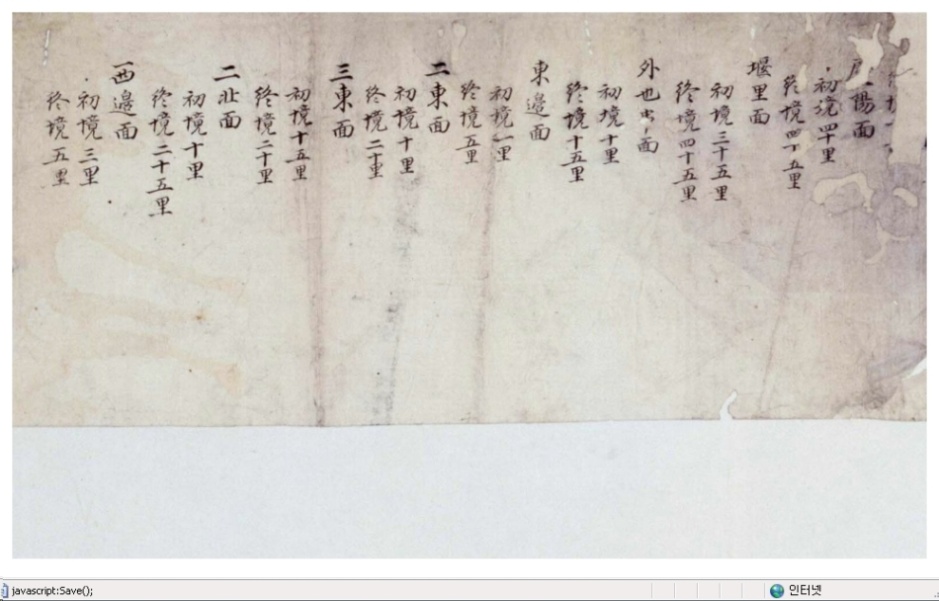 陽面
初境四十里
終境四十五里
堰里面
初境三十五里
終境四十五里
外也串面
初境十里
終境十五里
東邊面
初境一里
終境五里
二東面
初境十里
終境二十里
三東面
初境十五里
終境二十里
二北面
初境十里
終境二十五里
西邊面
初境三里
終境五里
javascript:Save();
인터넷